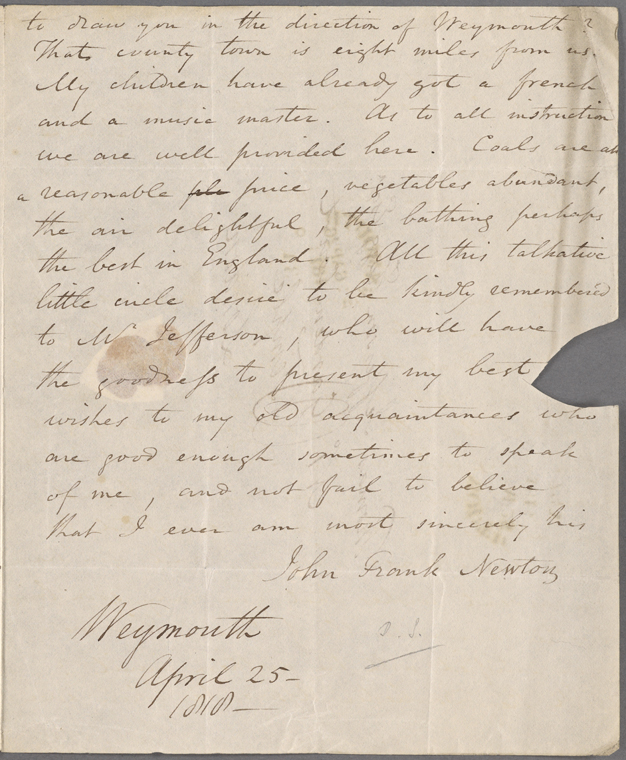 to draw you in the direction of Weymouth?
That county town is eight miles from us.
My children have already got a french
and a music master. As to all instruction
we are well provided here. Coals are at
a reasonable ple price, vegetables abundant,
the air delightful, the bathing perhaps
the best in England. All this talkative
little circle desire to be kindly remembered
to Mr Jefferson, who will have
the goodness to present my best
wishes to my old acquaintances who
are good enough sometimes to speak
of me, and not fail to believe
that I ever am most sincerely his
John Frank Newton
Weymouth
April 25-
1818-